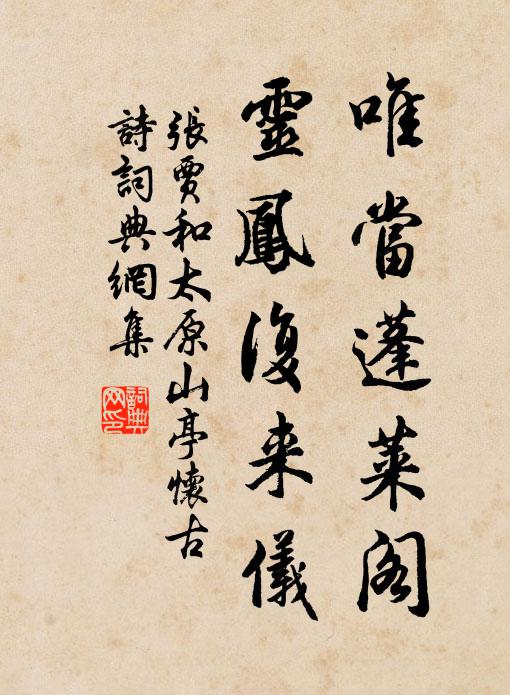 唯當蓬萊阁
靈鳳復来儀
張賈和太原山亭懷古
詩詞典網集
詞典网印